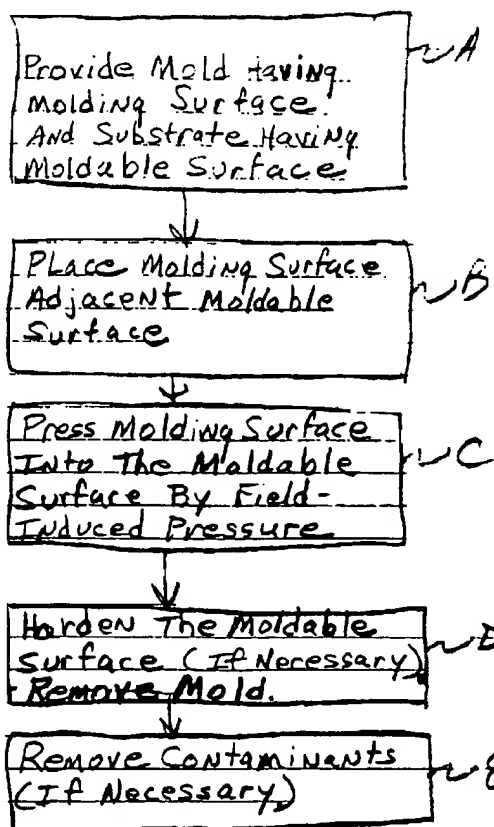 Provide Mold Having
Molding Surface
And Substrate Having
Moldable Surface
A
Place Molding Surface
Adjacent Moldable
Surface
B
Press Molding Surface
Into The Moldable
Surface By Field-
Induced Pressure
C
Harden The Moldable
Surface (If Necessary)
Remove Mold.
Remove Contaminants
(If Necessary)
E